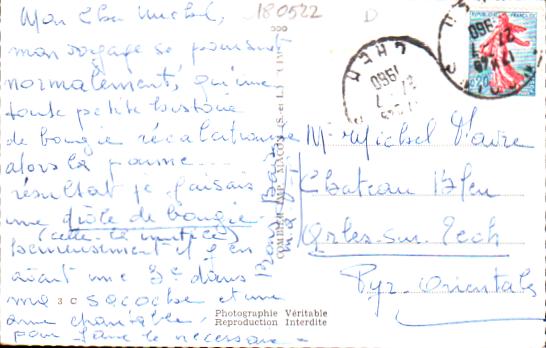 Mon cher Michel,
mon voyage se poursuit
normalement, qu'une
toute petite histoire
de bougie récalcitrante
alors la panne...
résultat je faisais
une drôle de bougie
(celle-là inutile)
heureusement il y en
avait une 3e dans
ma sacoche et une
âme charitable,
pour faire le nécessaire =
180522
D
REPUBLIQUE FRANCAISE
0,20
1960
M. Michel
Chateau Bleu
Arles-sur-Tech
Pyr. Orientales
3 C
Photographie Véritable
Reproduction Interdite